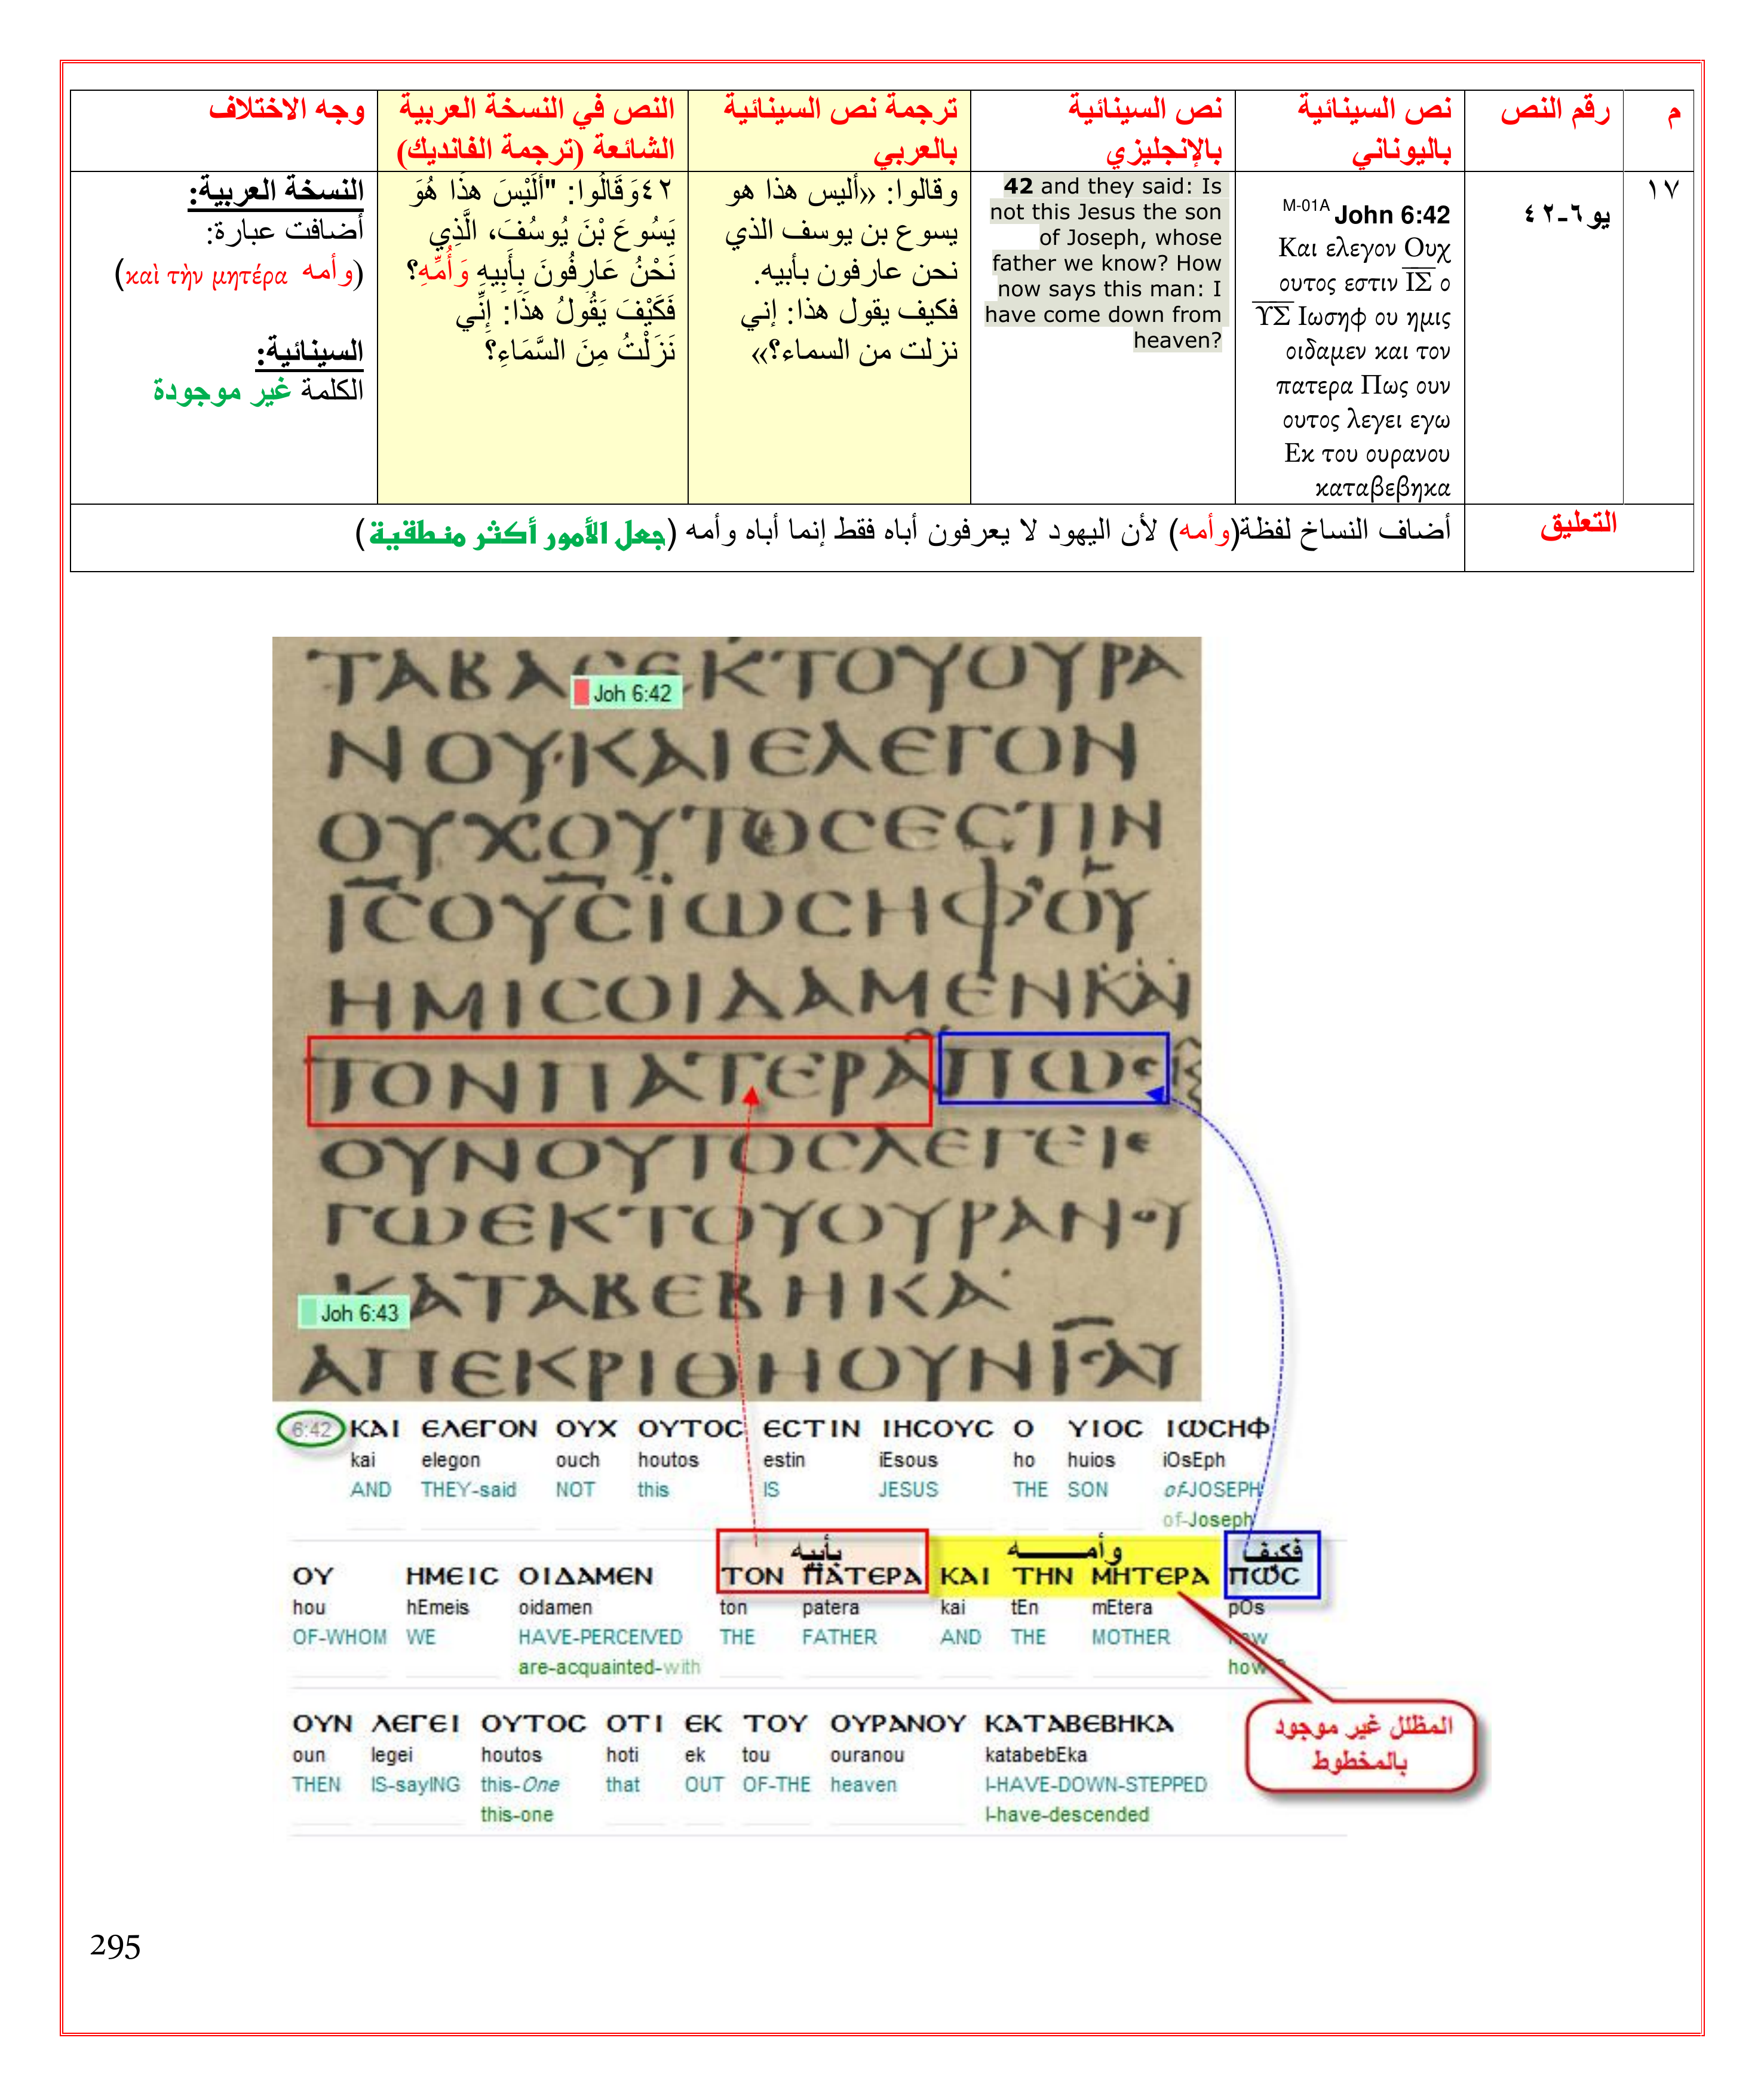 م
رقم النص
نص السينائية
باليوناني
نص السينائية
بالإنجليزي
ترجمة نص السينائية
بالعربي
النص في النسخة العربية
الشائعة (ترجمة الفانديك)
وجه الاختلاف
١٧
يو ٦-٤٢
M-01A John 6:42
Και ελεγον Ουχ
ουτος εστιν ΙΣ ο
ΥΣ Ιωσηφ ου ημις
οιδαμεν και τον
πατερα Πως ουν
ουτος λεγει εγω
Εκ του ουρανου
καταβεβηκα
42 and they said: Is
not this Jesus the son
of Joseph, whose
father we know? How
now says this man: I
have come down from
heaven?
وقالوا: «أليس هذا هو
يسوع بن يوسف الذي
نحن عارفون بأبيه.
فكيف يقول هذا: إني
نزلت من السماء؟»
٤٢وَقَالُوا: "أَلَيْسَ هذَا هُوَ
يَسُوعَ بْنَ يُوسُفَ، الَّذِي
نَحْنُ عَارِفُونَ بِأَبِيهِ وَأُمِّهِ؟
فَكَيْفَ يَقُولُ هذَا: إِنِّي
نَزَلْتُ مِنَ السَّمَاءِ؟
النسخة العربية:
أضافت عبارة:
(وأمه καὶ τὴν μητέρα)
السينائية:
الكلمة غير موجودة
التعليق
أضاف النساخ لفظة(وأمه) لأن اليهود لا يعرفون أباه فقط إنما أباه وأمه (جعل الأمور أكثر منطقية)
Joh 6:42
ΝΟΥΚΑΙΕΛΕΓΟΝ
ΟΥΧΟΥΤΟCΕCΤΙΝ
ΙCΟΥCΪΩCΗΦΟΥ
ΗΜΙCΟΙΔΑΜΕΝΚΑΙ
ΤΟΝΠΑΤΕΡΑΠΩC
ΟΥΝΟΥΤΟCΛΕΓΕΙΕ
ΓΩΕΚΤΟΥΟΥΡΑΝΟΥ
ΚΑΤΑΒΕΒΗΚΑ
Joh 6:43
ΑΠΕΚΡΙΘΗΟΥΝΙCΑΥ
6:42 ΚΑΙ ΕΛΕΓΟΝ ΟΥΧ ΟΥΤΟC ΕCΤΙΝ ΙΗCΟΥC Ο ΥΙΟC ΙΩCΗΦ
kai elegon ouch houtos estin iEsous ho huios iOsEph
AND THEY-said NOT this IS JESUS THE SON of-JOSEPH
of-Joseph
بأبيه وأمـــــه فكيف
ΟΥ ΗΜΕΙC ΟΙΔΑΜΕΝ ΤΟΝ ΠΑΤΕΡΑ ΚΑΙ ΤΗΝ ΜΗΤΕΡΑ ΠΩC
hou hEmeis oidamen ton patera kai tEn mEtera pOs
OF-WHOM WE HAVE-PERCEIVED THE FATHER AND THE MOTHER
are-acquainted-with how
ΟΥΝ ΛΕΓΕΙ ΟΥΤΟC ΟΤΙ ΕΚ ΤΟΥ ΟΥΡΑΝΟΥ ΚΑΤΑΒΕΒΗΚΑ
oun legei houtos hoti ek tou ouranou katabebEka
THEN IS-sayING this-One that OUT OF-THE heaven I-HAVE-DOWN-STEPPED
this-one I-have-descended
المظلل غير موجود
بالمخطوط
295